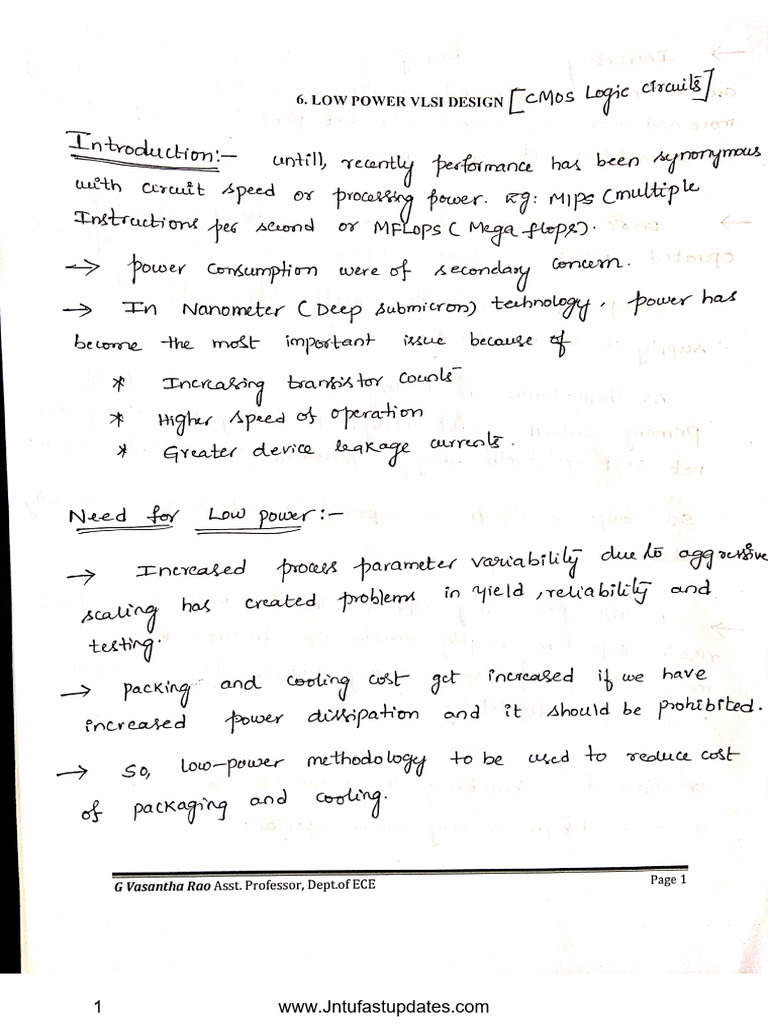 6. LOW POWER VLSI DESIGN [CMOS Logic circuits].
Introduction:- untill, recently performance has been synonymous
with circuit speed or processing power. Eg: MIPS (multiple
Instructions per second or MFLOPS ( Mega flops).
→ power consumption were of secondary concern.
→ In Nanometer (Deep submicron) technology, power has
become the most important issue because of
* Increasing transistor counts
* Higher speed of operation
* Greater device leakage currents.
Need for Low power:-
→ Increased process parameter variability due to aggressive
scaling has created problems in yield, reliability and
testing.
→ packing and cooling cost get increased if we have
increased power dissipation and it should be prohibited.
→ So, low-power methodology to be used to reduce cost
of packaging and cooling.
G Vasantha Rao Asst. Professor, Dept.of ECE Page 1
1 www.Jntufastupdates.com